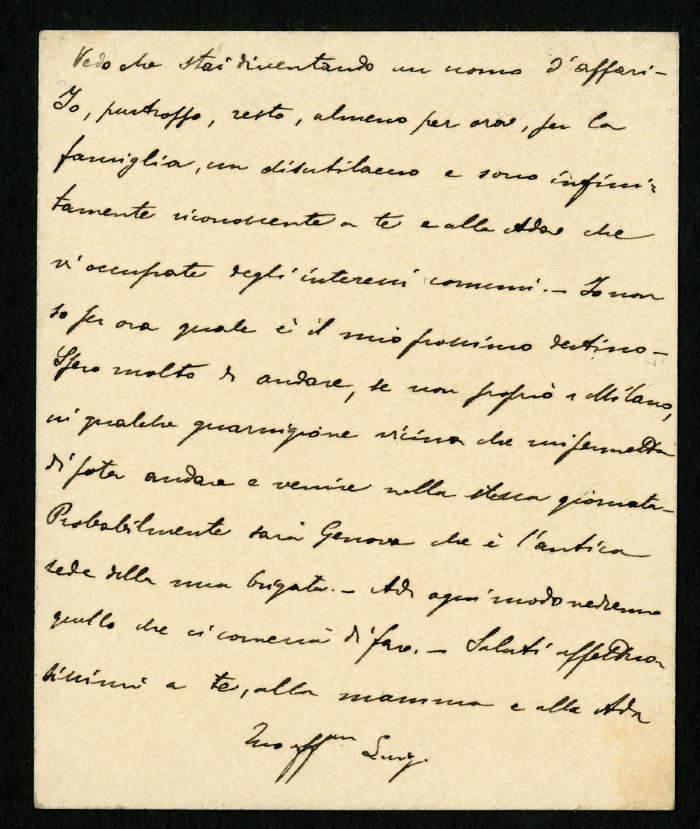 Vedo che stai diventando un uomo d'affari –
Io, purtroppo, resto, almeno per ora, per la
famiglia, un disutilaccio e sono infini-
tamente riconoscente a te e alla Ada che
vi occupate degli interessi comuni. – Io non
so per ora quale è il mio prossimo destino –
Spero molto di andare, se non proprio a Milano,
in qualche guarnigione vicina che mi permetta
di poter andare e venire nella stessa giornata –
Probabilmente sarà Genova che è l'antica
sede della mia brigata. – Ad ogni modo vedremo
quello che ci converrà di fare. – Saluti affettuo
sissimi a te, alla mamma e alla Ada
Tuo aff.mo Luigi